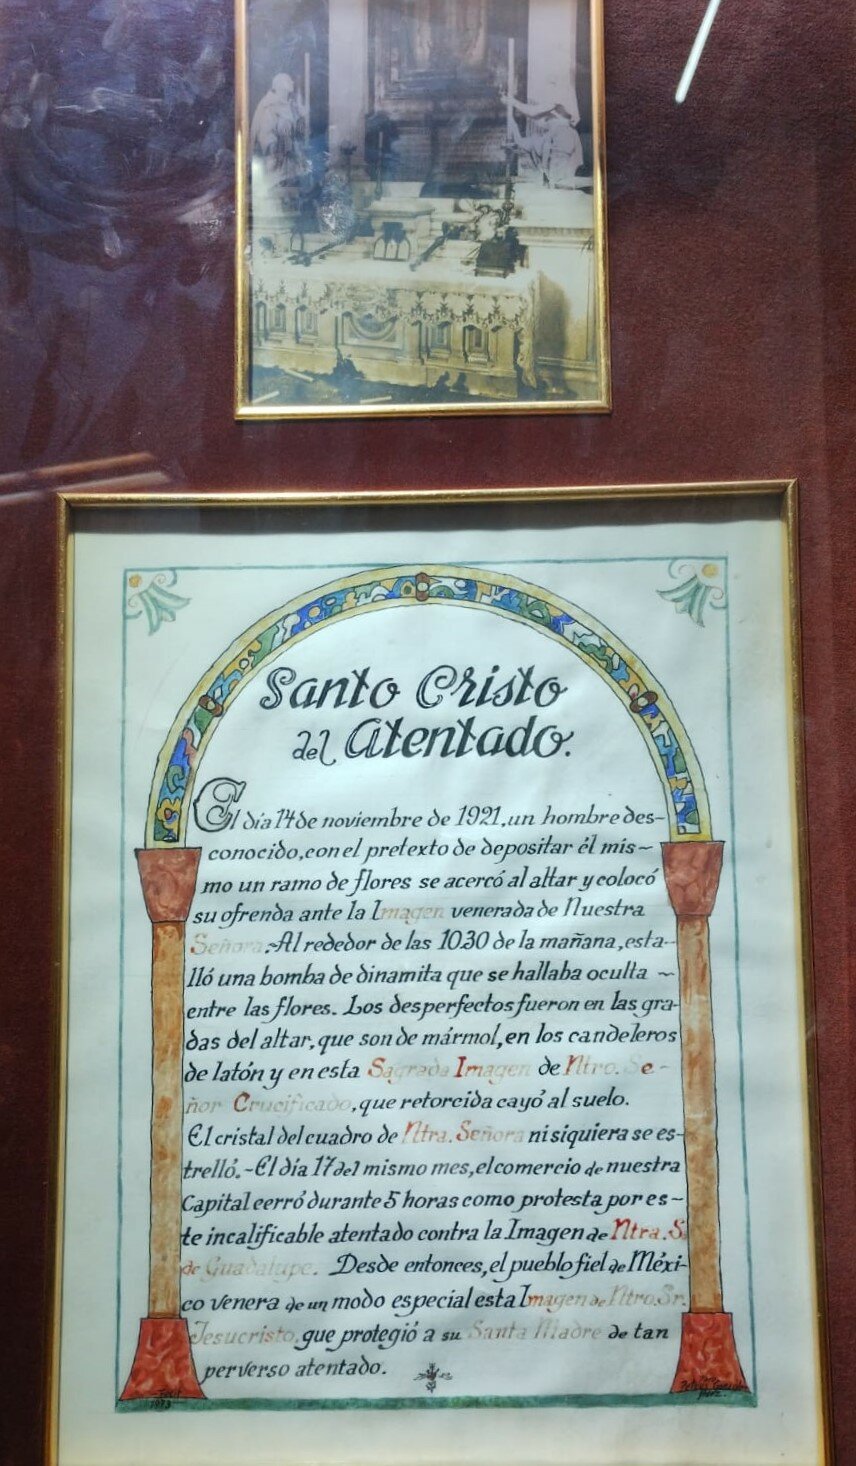 Santo Cristo
del Atentado.
El día 14 de noviembre de 1921, un hombre des-
conocido, con el pretexto de depositar él mis-
mo un ramo de flores se acercó al altar y colocó
su ofrenda ante la Imagen venerada de Nuestra
Señora.-Al rededor de las 1030 de la mañana, esta-
lló una bomba de dinamita que se hallaba oculta ~
entre las flores. Los desperfectos fueron en las gra-
das del altar, que son de mármol, en los candeleros
de latón y en esta Sagrada Imagen de Ntro. Se-
ñor Crucificado, que retorcida cayó al suelo.
El cristal del cuadro de Ntra. Señora ni siquiera se es-
trelló.-El día 17 del mismo mes, el comercio de nuestra
Capital cerró durante 5 horas como protesta por es-
te incalificable atentado contra la Imagen de Ntra. S.
de Guadalupe. Desde entonces, el pueblo fiel de Méxi-
co venera de un modo especial esta Imagen de Ntro. Sr.
Jesucristo, que protegió a su Santa Madre de tan
perverso atentado.
1973